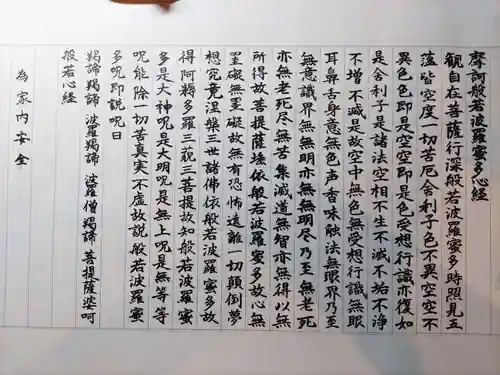 摩訶般若波羅蜜多心経
観自在菩薩行深般若波羅蜜多時照見五
蘊皆空度一切苦厄舎利子色不異空空不
異色色即是空空即是色受想行識亦復如
是舎利子是諸法空相不生不滅不垢不浄
不増不減是故空中無色無受想行識無眼
耳鼻舌身意無色声香味触法無眼界乃至
無意識界無無明亦無無明尽乃至無老死
亦無老死尽無苦集滅道無智亦無得以無
所得故菩提薩埵依般若波羅蜜多故心無
罣礙無罣礙故無有恐怖遠離一切顛倒夢
想究竟涅槃三世諸佛依般若波羅蜜多故
得阿耨多羅三藐三菩提故知般若波羅蜜
多是大神呪是大明呪是無上呪是無等等
呪能除一切苦真実不虚故説般若波羅蜜
多呪即説呪曰
羯諦羯諦 波羅羯諦 波羅僧羯諦 菩提薩婆呵
般若心経
為家内安全